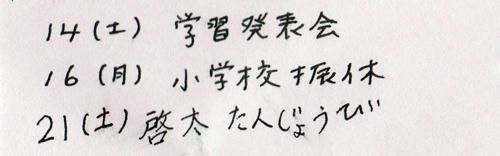 14(土) 学習発表会
16(月) 小学校振休
21(土) 啓太 たんじょうび